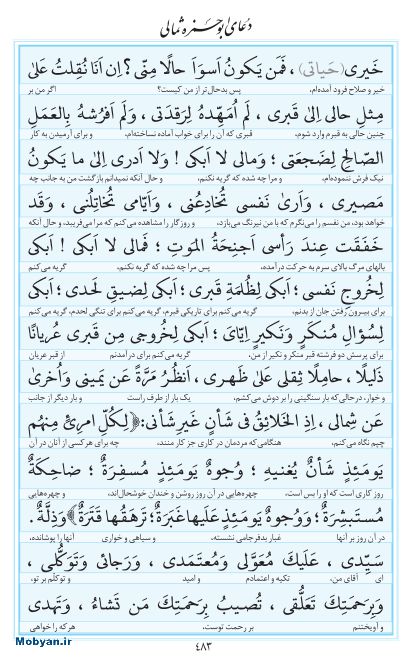 دعای ابوحمزه ثمالی
خَیری (حَیاتی) ، فَمَن یَکونُ اَسوَاَ حالًا مِنّی ؟ اِن اَنَا نُقِلتُ عَلیٰ
خیر و صلاح فرود آمده‌ام، پس بدحال‌تر از من کیست؟ اگر من بر
مِثلِ حالی اِلیٰ قَبری ، لَم اُمَهِّدهُ لِرَقدَتی ، وَلَم اَفرُشهُ بِالعَمَلِ
چنین حالی به قبرم وارد شوم، قبری که آن را برای خواب آماده نساخته‌ام، و برای آرمیدن به کار
الصّالِحِ لِضَجعَتی ؛ وَمالی لا اَبکی ! وَلا اَدری اِلیٰ ما یَکونُ
نیک فرش ننموده‌ام، و مرا چه شده که گریه نکنم، و حال آنکه نمیدانم بازگشت من به جانب چه
مَصیری ، وَاَریٰ نَفسی تُخادِعُنی ، وَاَیّامی تُخاتِلُنی ، وَقَد
خواهد بود، من نفسم را می‌نگرم که با من نیرنگ می‌بازد، و روزگار را مشاهده می‌کنم که مرا می‌فریبد، و حال آنکه
خَفَقَت عِندَ رَأسی اَجنِحَةُ المَوتِ ؛ فَمالی لا اَبکی ! اَبکی
بالهای مرگ بالای سرم به حرکت درآمده، پس مرا چه شده که گریه نکنم، گریه می‌کنم
لِخُروجِ نَفسی ؛ اَبکی لِظُلمَةِ قَبری ؛ اَبکی لِضیقِ لَحدی ؛ اَبکی
برای بیرون رفتن جان از بدنم، گریه می‌کنم برای تاریکی قبرم، گریه می‌کنم برای تنگی لحدم، گریه می‌کنم
لِسُؤالِ مُنکَرٍ وَنَکیرٍ اِیّایَ ؛ اَبکی لِخُروجی مِن قَبری عُریانًا
برای پرسش دو فرشته قبر منکر و نکیر از من. گریه می‌کنم برای درآمدنم از قبر عریان
ذَلیلًا ، حامِلًا ثِقلی عَلیٰ ظَهری ، اَنظُرُ مَرَّةً عَن یَمینی وَاُخریٰ
و خوار، درحالی‌که بار سنگینی را بر دوش می‌کشم، یک بار از طرف راست و بار دیگر از جانب
عَن شِمالی ، اِذِ الخَلائِقُ فی شَأنٍ غَیرِ شَأنی: ﴿لِکُلِّ امرِئٍ مِنهُم
چپم نگاه می‌کنم، هنگامی‌که مردمان در کاری جز کار منند، چه برای هرکسی از آنان در آن
یَومَئِذٍ شَأنٌ یُغنیهِ ؛ وُجوهٌ یَومَئِذٍ مُسفِرَةٌ ؛ ضاحِکَةٌ
روز کاری است که او را بس است، چهره‌هایی در آن روز روشن و خندان خوشحال‌اند، و چهره‌هایی
مُستَبشِرَةٌ ؛ وَوُجوهٌ یَومَئِذٍ عَلَیها غَبَرَةٌ ؛ تَرهَقُها قَتَرَةٌ﴾ وَذِلَّةٌ .
در آن روز بر آنها غبار بدفرجامی نشسته، و سیاهی و خواری آنها را پوشانده،
سَیِّدی ، عَلَیکَ مُعَوَّلی وَمُعتَمَدی ، وَرَجائی وَتَوَکُّلی ،
ای آقای من، تکیه و اعتمادم و امید و توکلم بر تو،
وَبِرَحمَتِکَ تَعَلُّقی ، تُصیبُ بِرَحمَتِکَ مَن تَشاءُ ، وَتَهدی
و آویختنم بر رحمت توست. هرکه را خواهی
٤٨٣
Mobyan.ir